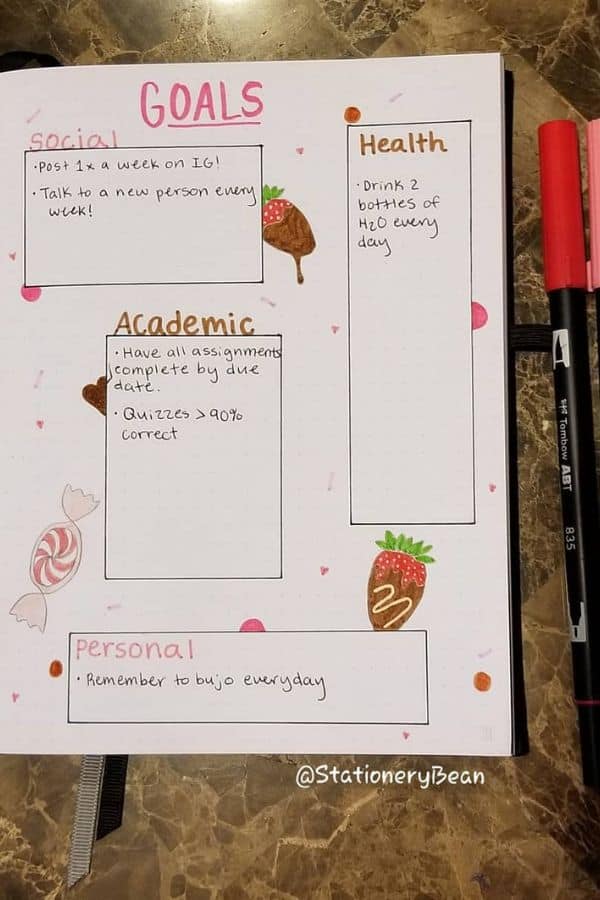 GOALS
Social
· Post 1x a week on IG!
· Talk to a new person every
week!
Health
· Drink 2
bottles of
H2O every
day
Academic
· Have all assignments
complete by due
date.
· Quizzes > 90%
correct
Personal
· Remember to bujo everyday
Tombow ABT
835
@StationeryBean